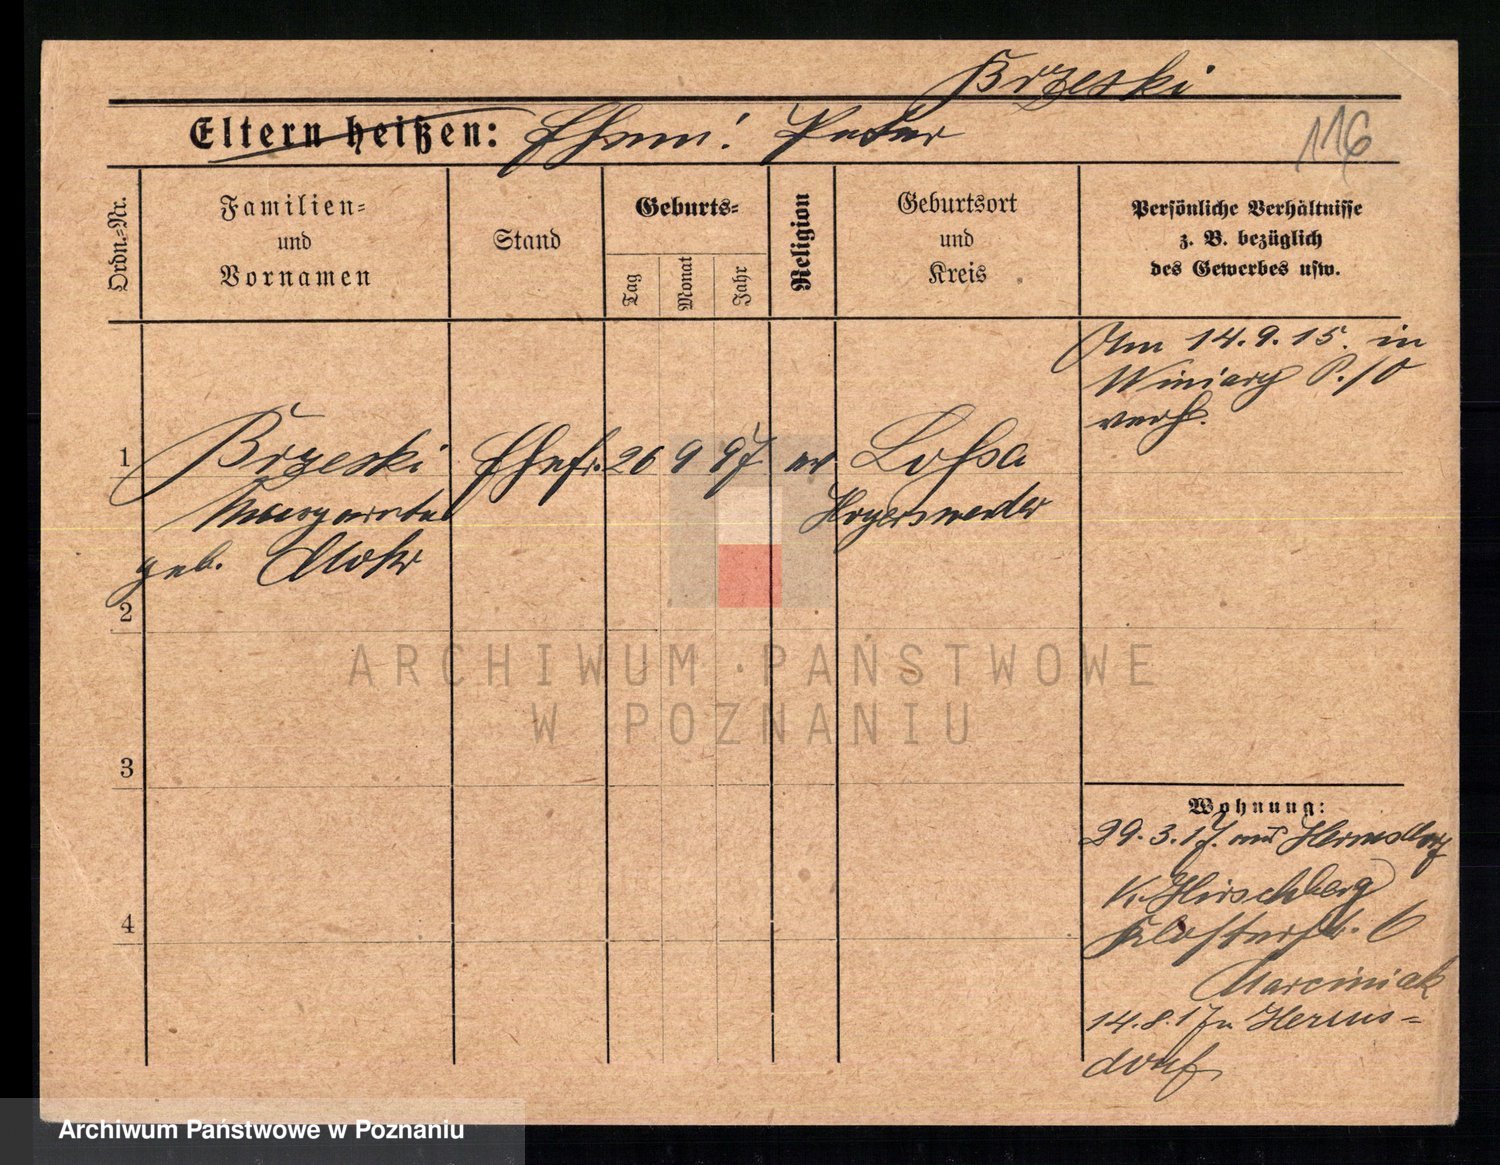 Brzeski
Eltern heißen: Ehem: Peter
116
Ordn.-Nr.
Familien-
und
Vornamen
Stand
Geburts-
Tag
Monat
Jahr
Religion
Geburtsort
und
Kreis
Persönliche Verhältnisse
z. B. bezüglich
des Gewerbes usw.
Am 14.9.15. in
Winiary P./O
verh.
1 Brzeski Ehefr. 26 9 97 ev Lohsa
Margarete Hoyerswerder
geb. Mohr
2
3
4
Wohnung:
29.3.17. aus Hermsdorf
K. Hirschberg
Klosterstr. 6
Marciniak
14.8.17 n Herms-
dorf
ARCHIWUM PAŃSTWOWE
W POZNANIU
Archiwum Państwowe w Poznaniu